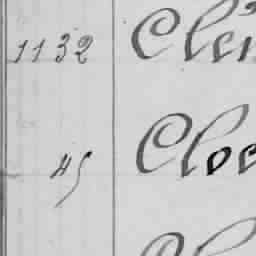 1132 Clén
45 Cloe